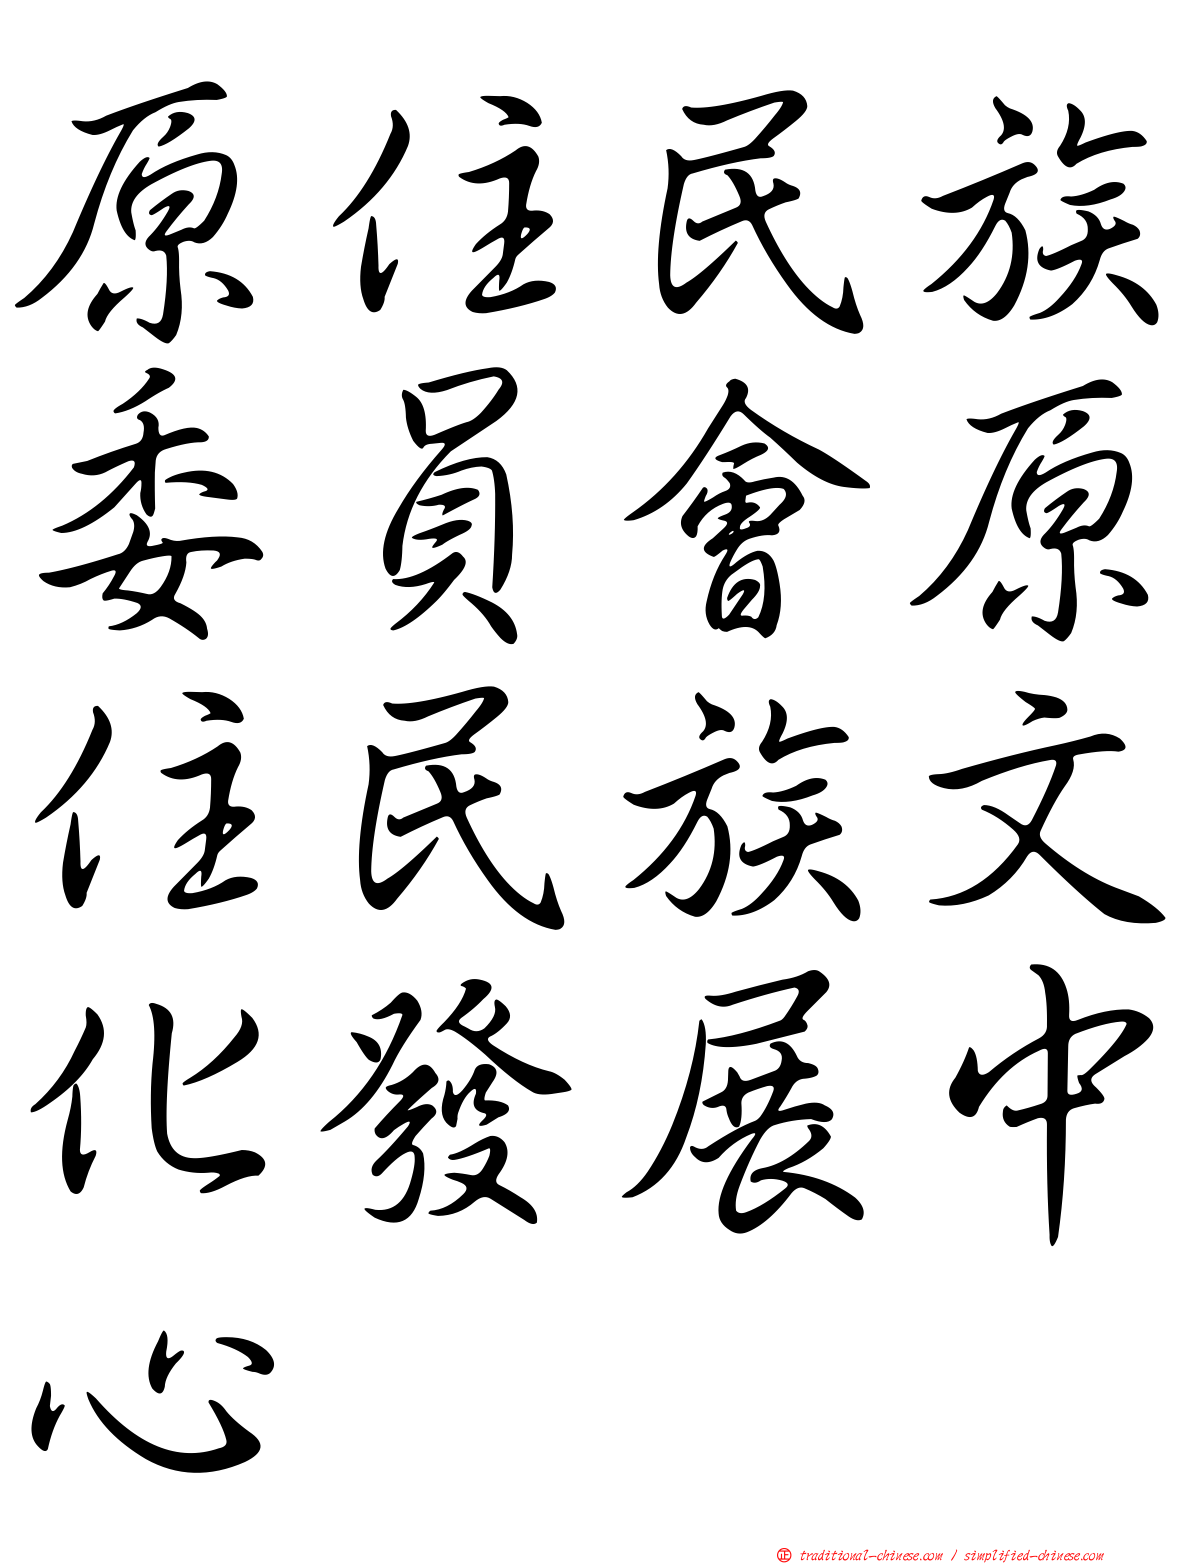 原住民族
委員會原
住民族文
化發展中
心
㊣ traditional-chinese.com / simplified-chinese.com